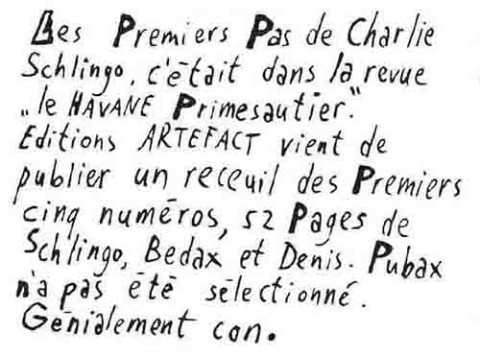 Les Premiers Pas de Charlie
Schlingo, c'était dans la revue
„le HAVANE Primesautier."
Editions ARTEFACT vient de
publier un receuil des Premiers
cinq numéros, 52 Pages de
Schlingo, Bedax et Denis. Pubax
n'a pas été sélectionné.
Génialement con.